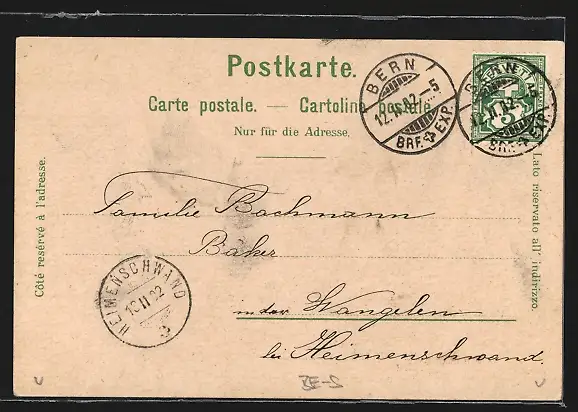 Postkarte.
Carte postale. — Cartolina postale.
Nur für die Adresse.
BERN
12.II.02.–5
BRF. EXP.
BERN
12.II.02
BRF. EXP.
5
Côté reservé à l'adresse.
Lato riservato all' indirizzo
Familie Bachmann
Baker
in der Wangelen
bei Heimenschwand.
HEIMENSCHWAND
13 II 02